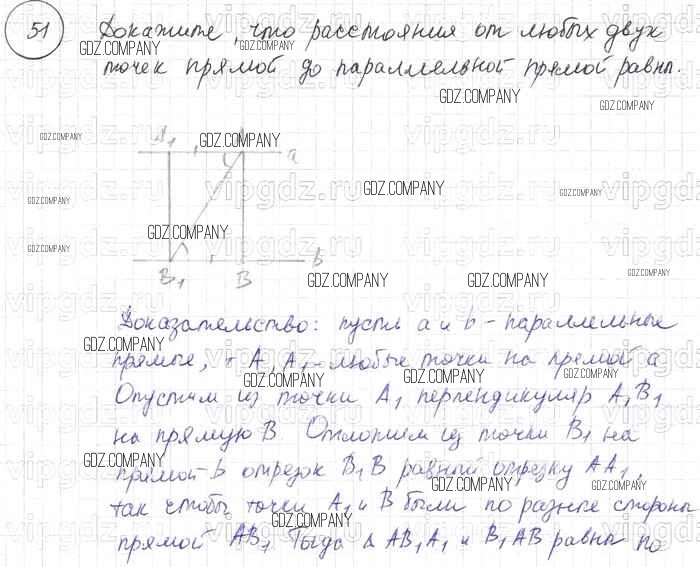 51 Докажите, что расстояния от любых двух
точек прямой до параллельной прямой равны.
A1 a
B1 B b
Доказательство: пусть a и b - параллельные
прямые, A, A1 - любые точки на прямой a
Опустим из точки A1 перпендикуляр A1B1
на прямую B. Отложим из точки B1 на
прямой b отрезок B1B равный отрезку AA1,
так чтобы точки A1 и B были по разные стороны
прямой AB1. Тогда ∆ AB1A1 и B1AB равны по
GDZ.COMPANY
vipgdz.ru